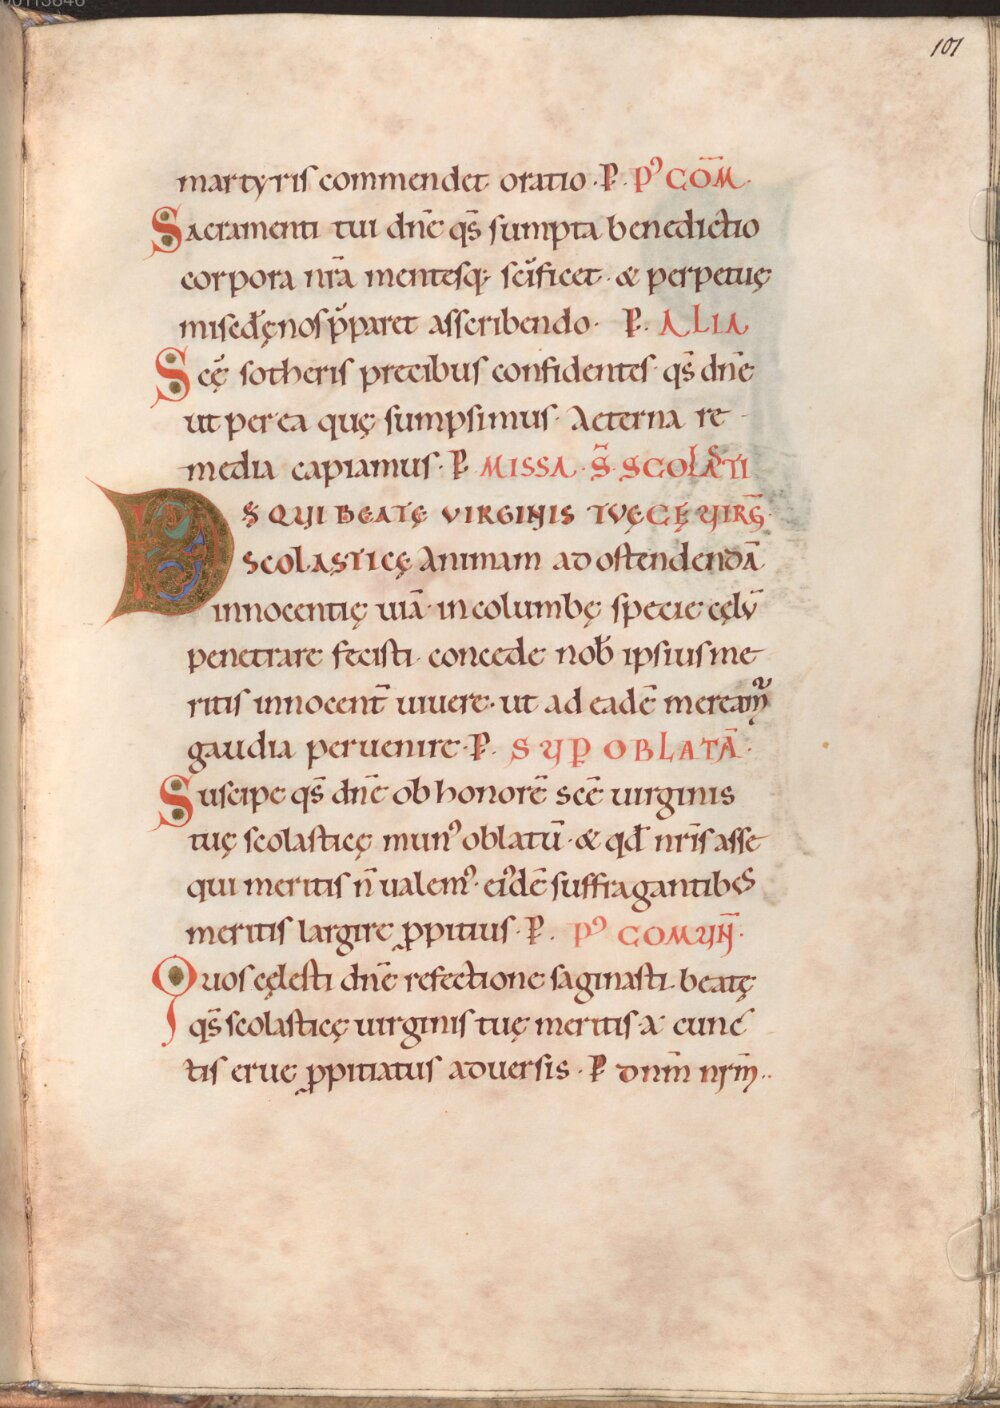 101
martyris commendet oratio· P̄. P᾽ COM̄·
Sacramenti tui dn̄e qs̄ sumpta benedictio
corpora nr̄a mentesq; scīficet· & perpetuę
misedę nos p̄paret asscribendo· P̄. ALIA
Scę̄ sotheris precibus confidentes· qs̄ dn̄e
ut per ea quę sumpsimus· Aeterna re
media capiamus· P̄ MISSA· S̄· SCOLASTI
D̄S QUI BEATĘ VIRGINIS TVĘ CĘ UIRḠ·
SCOLASTICĘ Animam ad ostendendā
innocentię uiā· in columbę specie cęlū
penetrare fecisti· concede nob̄ ipsius me
ritis innocent̄ uiuere· ut ad eadē meream̄
gaudia peruenire· P̄. SUP OBLATĀ·
Suscipe qs̄ dn̄e ob honorē scē uirginis
tuę scolasticę mun᾽ oblatū· & qđ nr̄is asse
qui meritis n̄ ualem᾽· ei᾽dē suffragantibus
meritis largire ꝓpitius· P̄. P᾽ COMUN̄·
Quos cęlesti dn̄e refectione saginasti· beatę
qs̄ scolasticę uirginis tuę meritis· A cunc
tis erue ꝓpitiatus aduersis· P̄ dnm̄ nrm̄··